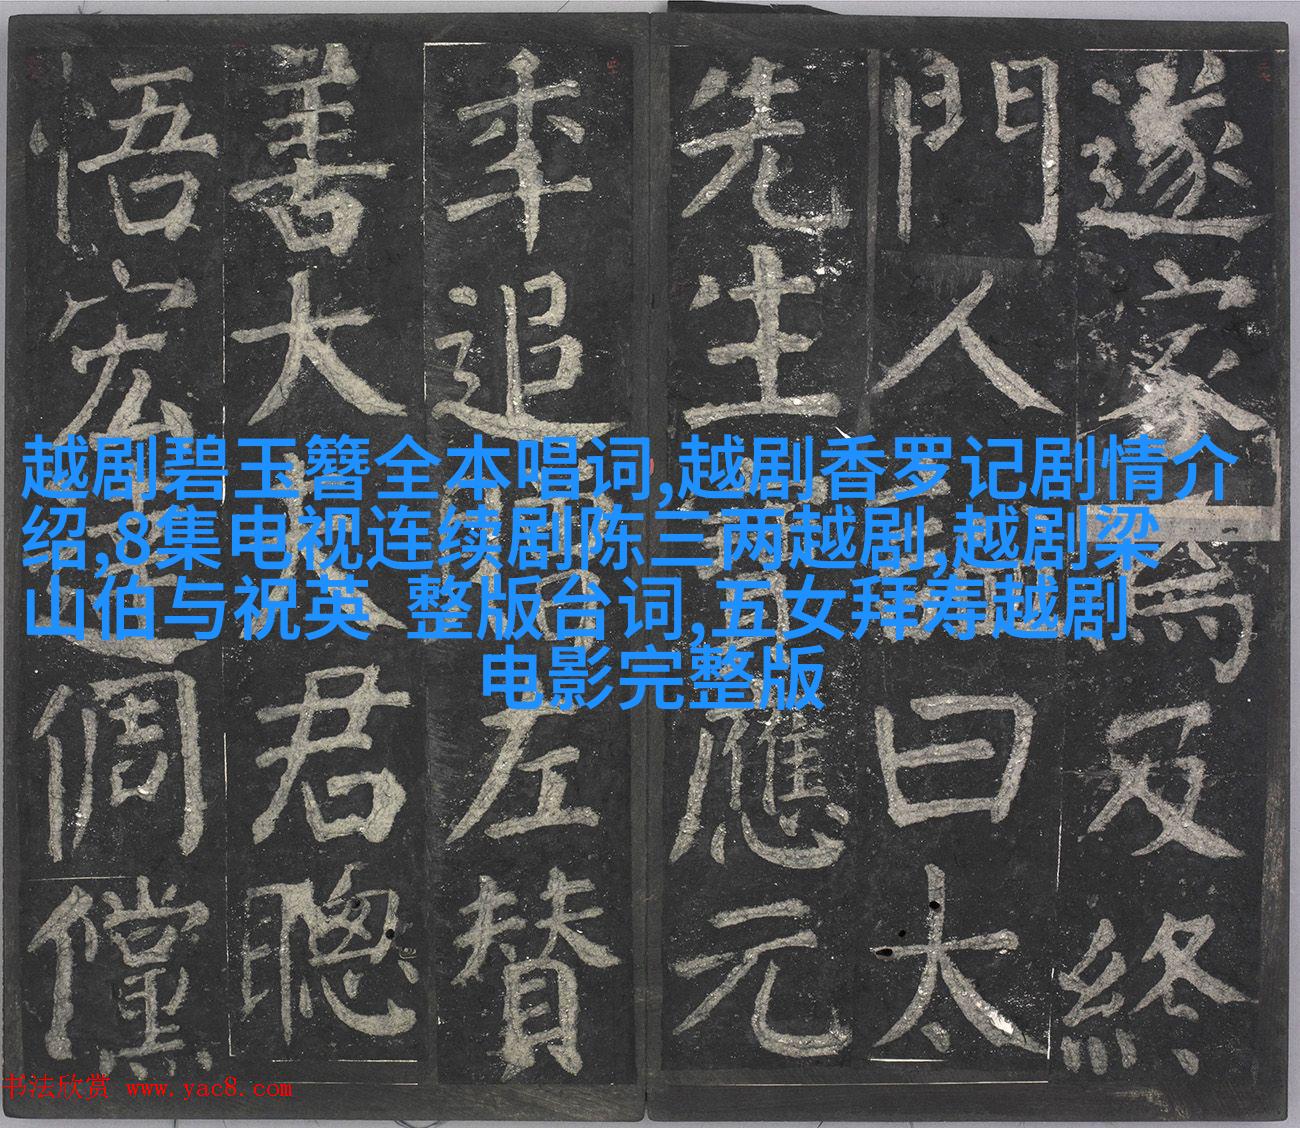 越剧碧玉簪全本唱词,越剧香罗记剧情介
绍,8集电视连续剧陈三两越剧,越剧梁
山伯与祝英 整版台词,五女拜寿越剧
电影完整版
遂家焉及終
門人曰太
先生應元
年追左贊
善大君聰
悟宏倜儻
书法欣赏 www.yac8.com